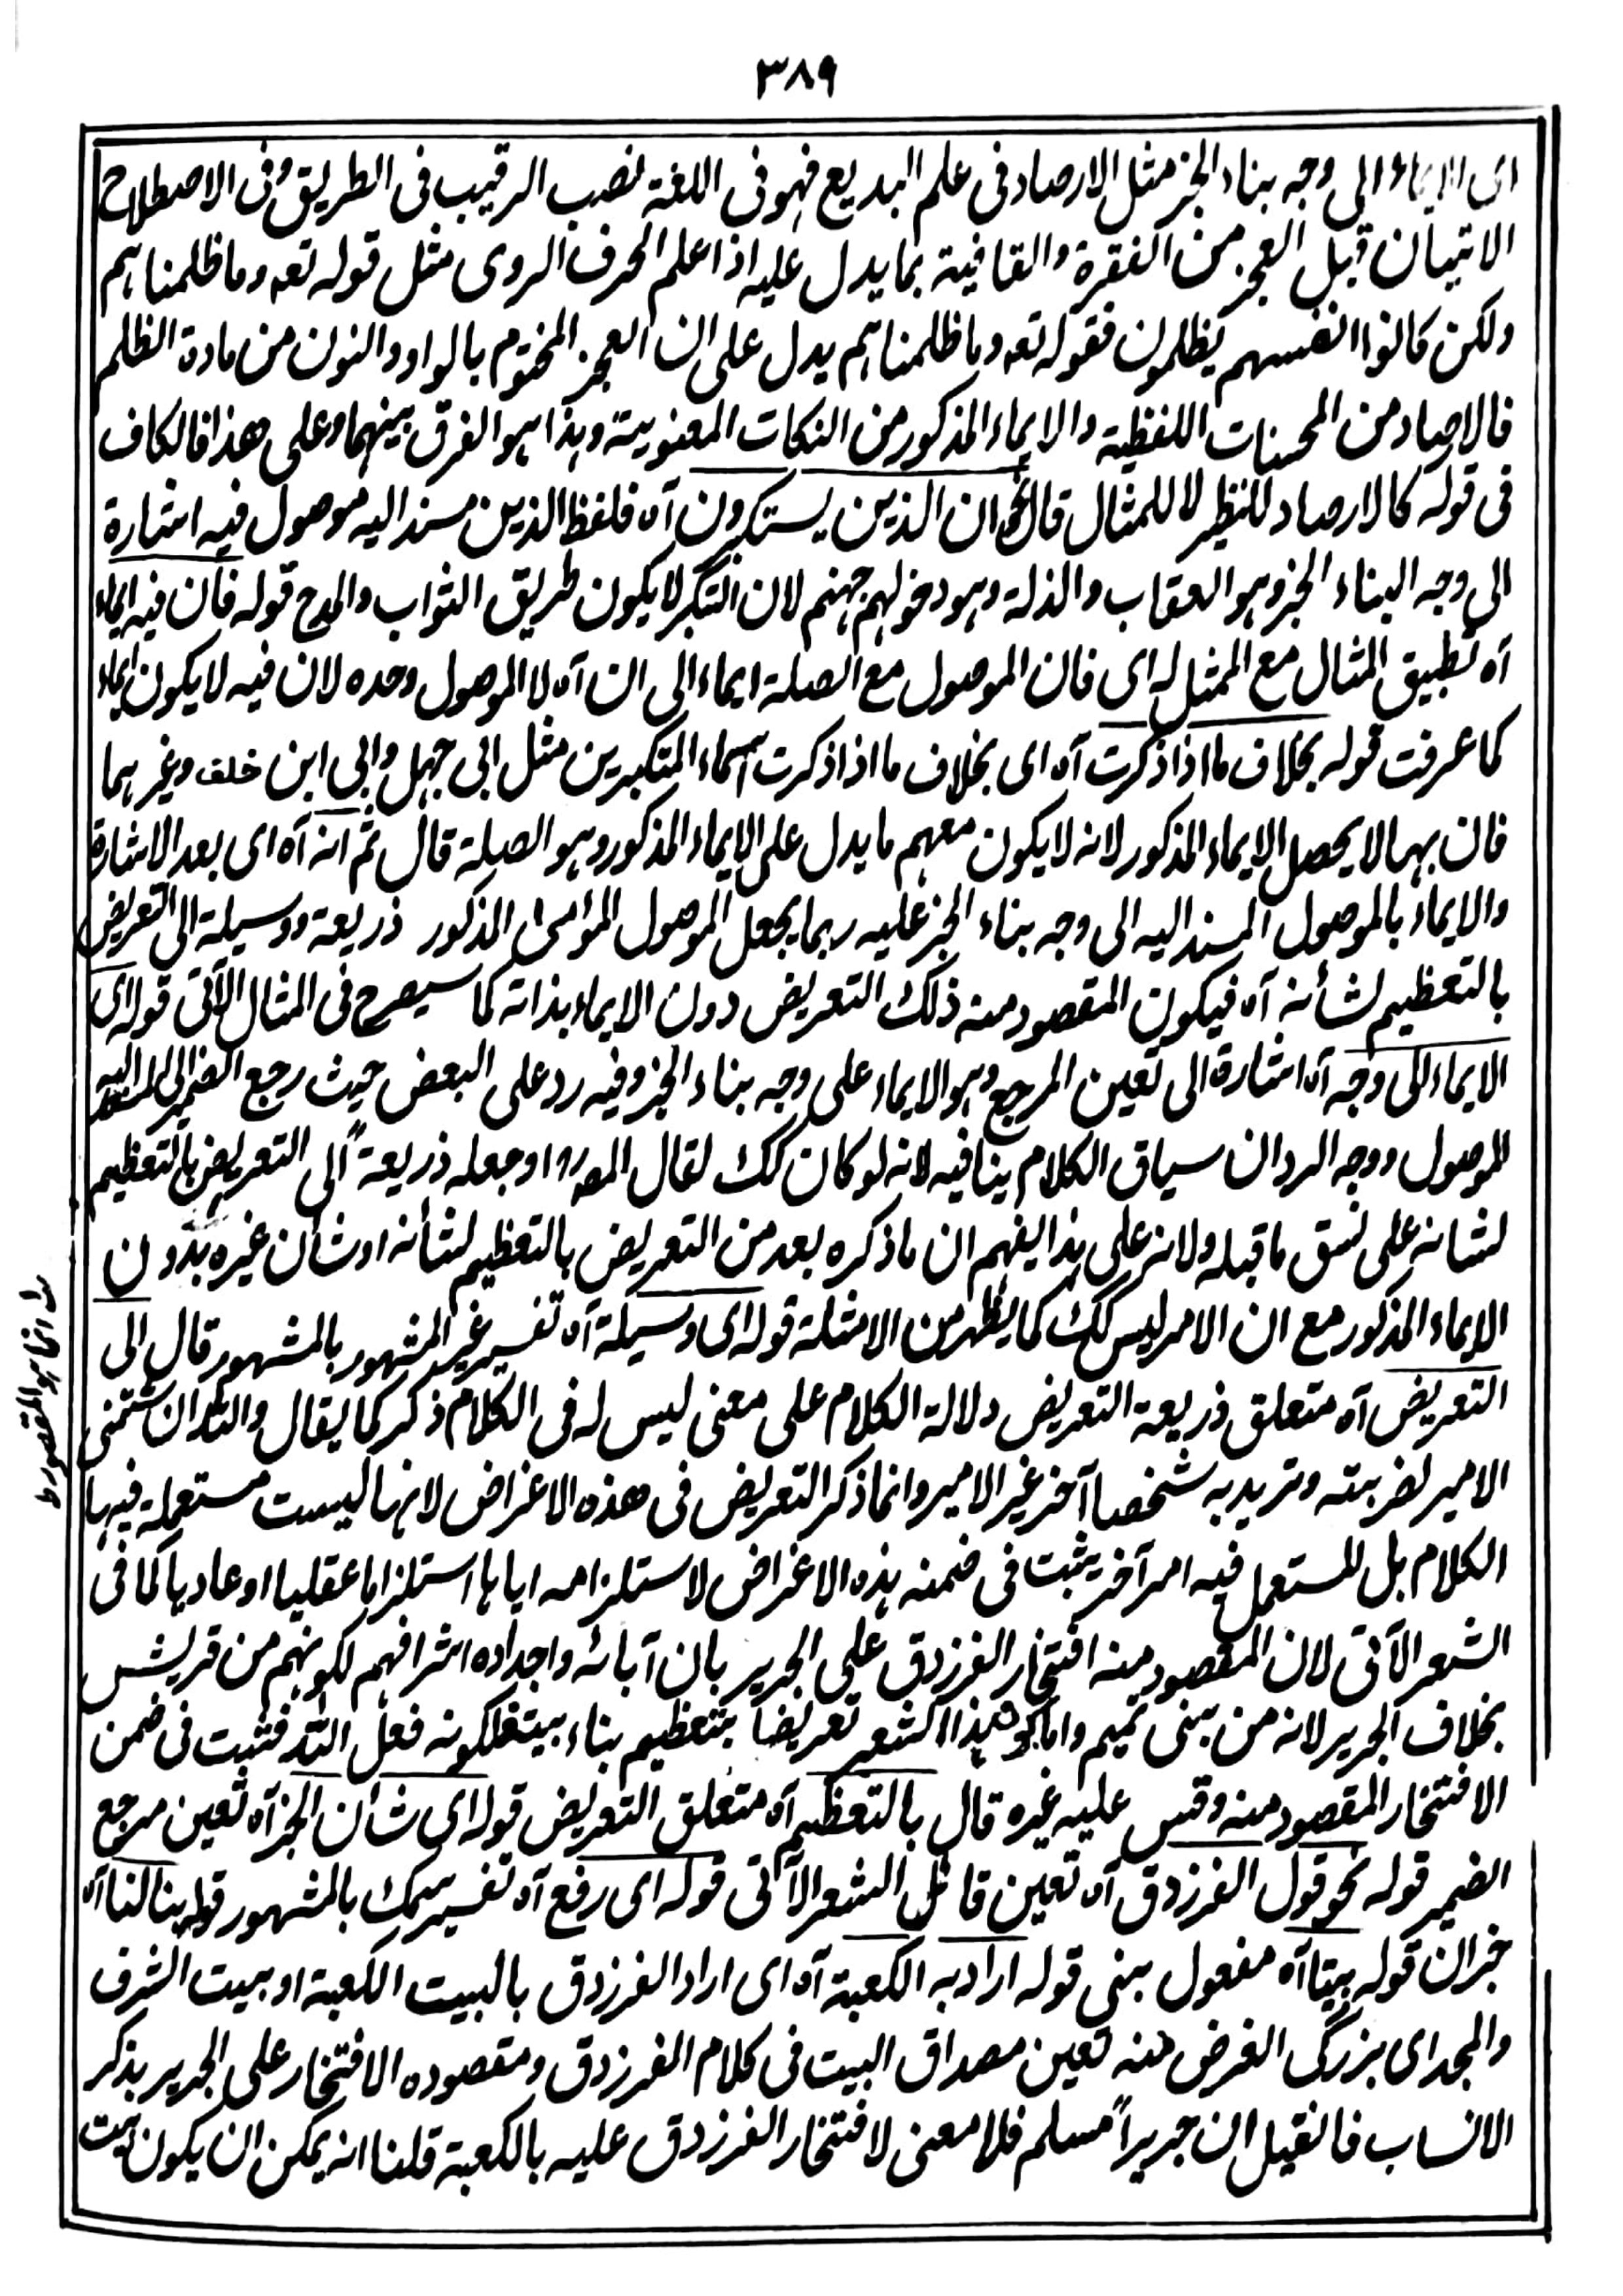 ٣٨٩
اى الايماء الى وجه بناء الخبر مثل الارصاد فى علم البديع فهو فى اللغة نصب الرقيب فى الطريق وفى الاصطلاح
الاتيان قبل العجز من الفقرة والقافية بما يدل عليه اذا علم الحرف الروى مثل قوله تعه وما ظلمناهم
ولكن كانوا انفسهم يظلمون فقوله تعه وما ظلمناهم يدل على ان العجز المختوم بالواو والنون من مادة الظلم
فالاصاد من المحسنات اللفظية والايماء المذكور من النكات المعنوية وهذا هو الفرق بينهما وعلى هذا فالكاف
فى قوله كالارصاد للنظير لا للمثال قال نحو ان الذين يستكبرون آه فلفظ الذين مسند اليه موصول فيه اشارة
الى وجه البناء الخبر وهو العقاب والذلة وهو دخولهم جهنم لان التكبر لا يكون طريق الثواب والمدح قوله فان فيه ايماء
آه تطبيق المثال مع الممثل له اى فان الموصول مع الصلة ايماء الى ان آه لا الموصول وحده لان فيه لا يكون ايماء
كما عرفت قوله بخلاف ما اذا ذكرت آه اى بخلاف ما اذا ذكرت اسماء المتكبرين مثل ابى جهل وابى ابن خلف وغيرهما
فان بهما لا يحصل الايماء المذكور لانه لا يكون معهم ما يدل على الايماء المذكور وهو الصلة قال ثم انه آه اى بعد الاشارة
والايماء بالموصول المسند اليه الى وجه بناء الخبر عليه ربما يجعل الموصول المؤمى المذكور ذريعة ووسيلة الى التعريض
بالتعظيم لشأنه آه فيكون المقصود منه ذلك التعريض دون الايماء بذاته كما سيصرح فى المثال الآتى قوله اى
الايماء الى وجه آه اشارة الى تعين المرجع وهو الايماء على وجه بناء الخبر وفيه رد على البعض حيث رجع الضمير الى المسند اليه
الموصول ووجه الرد ان سياق الكلام ينافيه لانه لو كان كك لقال المصـ او جعله ذريعةً الى التعريض بالتعظيم
لشانه على نسق ما قبله ولانه على هذا يفهم ان ما ذكره بعد من التعريض بالتعظيم لشأنه او شأن غيره بدون
الايماء المذكور مع ان الامر ليس كك كما يظهر من الامثلة قوله اى وسيلة آه تفسير غير المشهور بالمشهور قال الى
التعريض آه متعلق ذريعة التعريض دلالة الكلام على معنى ليس له فى الكلام ذكر كما يقال والله ان شتمنى
الامير لضربته وتريد به شخصا آخر غير الامير وانما ذكر التعريض فى هذه الاغراض لانها ليست مستعملة فيها
الكلام بل المستعمل فيه امر آخر يثبت فى ضمنه هذه الاغراض لاستلزامه اياها استلزاما عقليا او عاديا كما فى
الشعر الآتى لان المقصود منه افتخار الفرزدق على الجرير بان آبائه واجداده اشرافهم لكونهم من قريش
بخلاف الجرير لانه من بنى تميم واما كون هذا الشعر تعريضا بتعظيم بناء بيته لكونه فعل الله فثبت فى ضمن
الافتخار المقصود منه وقس عليه غيره قال بالتعظيم آه متعلق التعريض قوله اى شأن الخبر آه تعين مرجع
الضمير قوله نحو قول الفرزدق آه تعين قائل الشعر الآتى قوله اى رفع آه تفسير سمك بالمشهور قوله بنا لنا آه
خبر ان قوله بيتا آه مفعول بنى قوله اراد به الكعبة آه اى اراد الفرزدق بالبيت الكعبة او بيت الشرف
والمجد اى بزرگى الغرض منه تعين مصداق البيت فى كلام الفرزدق ومقصوده الافتخار على الجرير بذكر
الانساب فانقيل ان جريراً مسلم فلا معنى لافتخار الفرزدق عليه بالكعبة قلنا انه يمكن ان يكون بيت